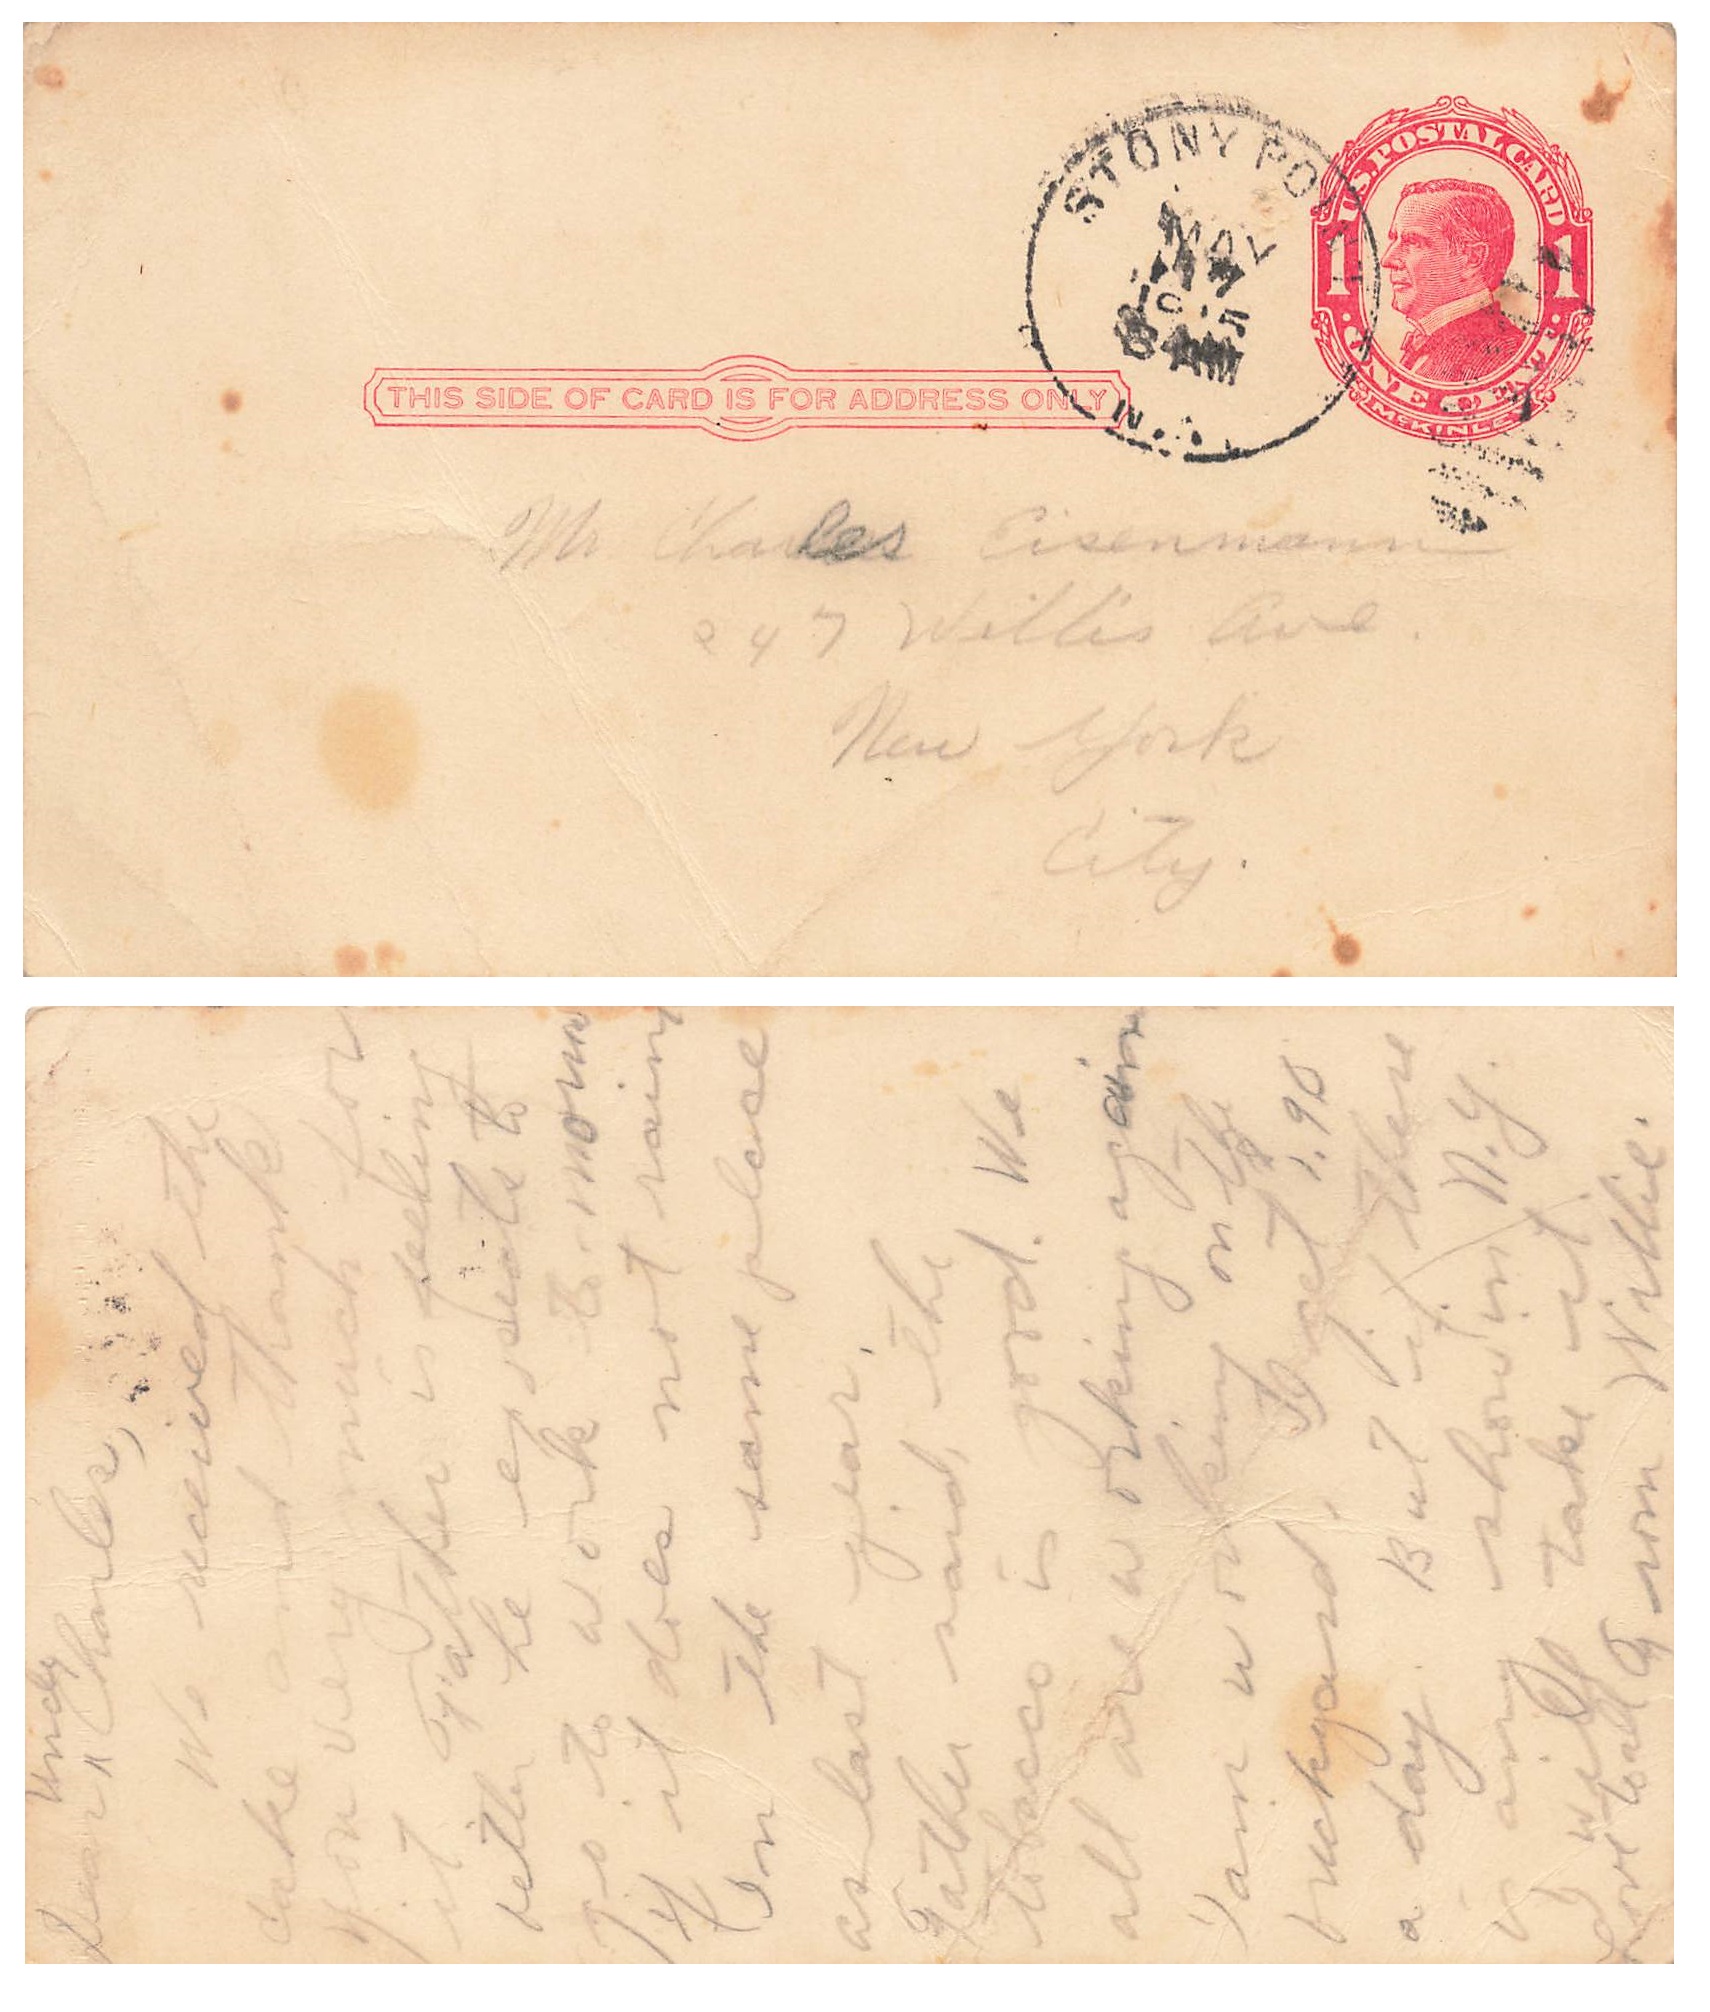 STONY PO
MAY
17
1915
8 AM
N.Y.
U.S. POSTAL CARD
1 1
ONE CENT
McKINLEY
THIS SIDE OF CARD IS FOR ADDRESS ONLY
Mr Charles Eisenmann
247 Willis Ave.
New York
City.
Dear Uncle Charles,
We received the
cake and thank
you very much for
it. Father is feeling
better he expects to
go to work to-morrow
If it does not rain,
In the same place
as last year.
Father said, the
tobacco is good. We
all are working again
I am working on the
brickyard, I get $1.90
a day. But if there
is any show in N.Y.
I will take it
Love to all From Willie.